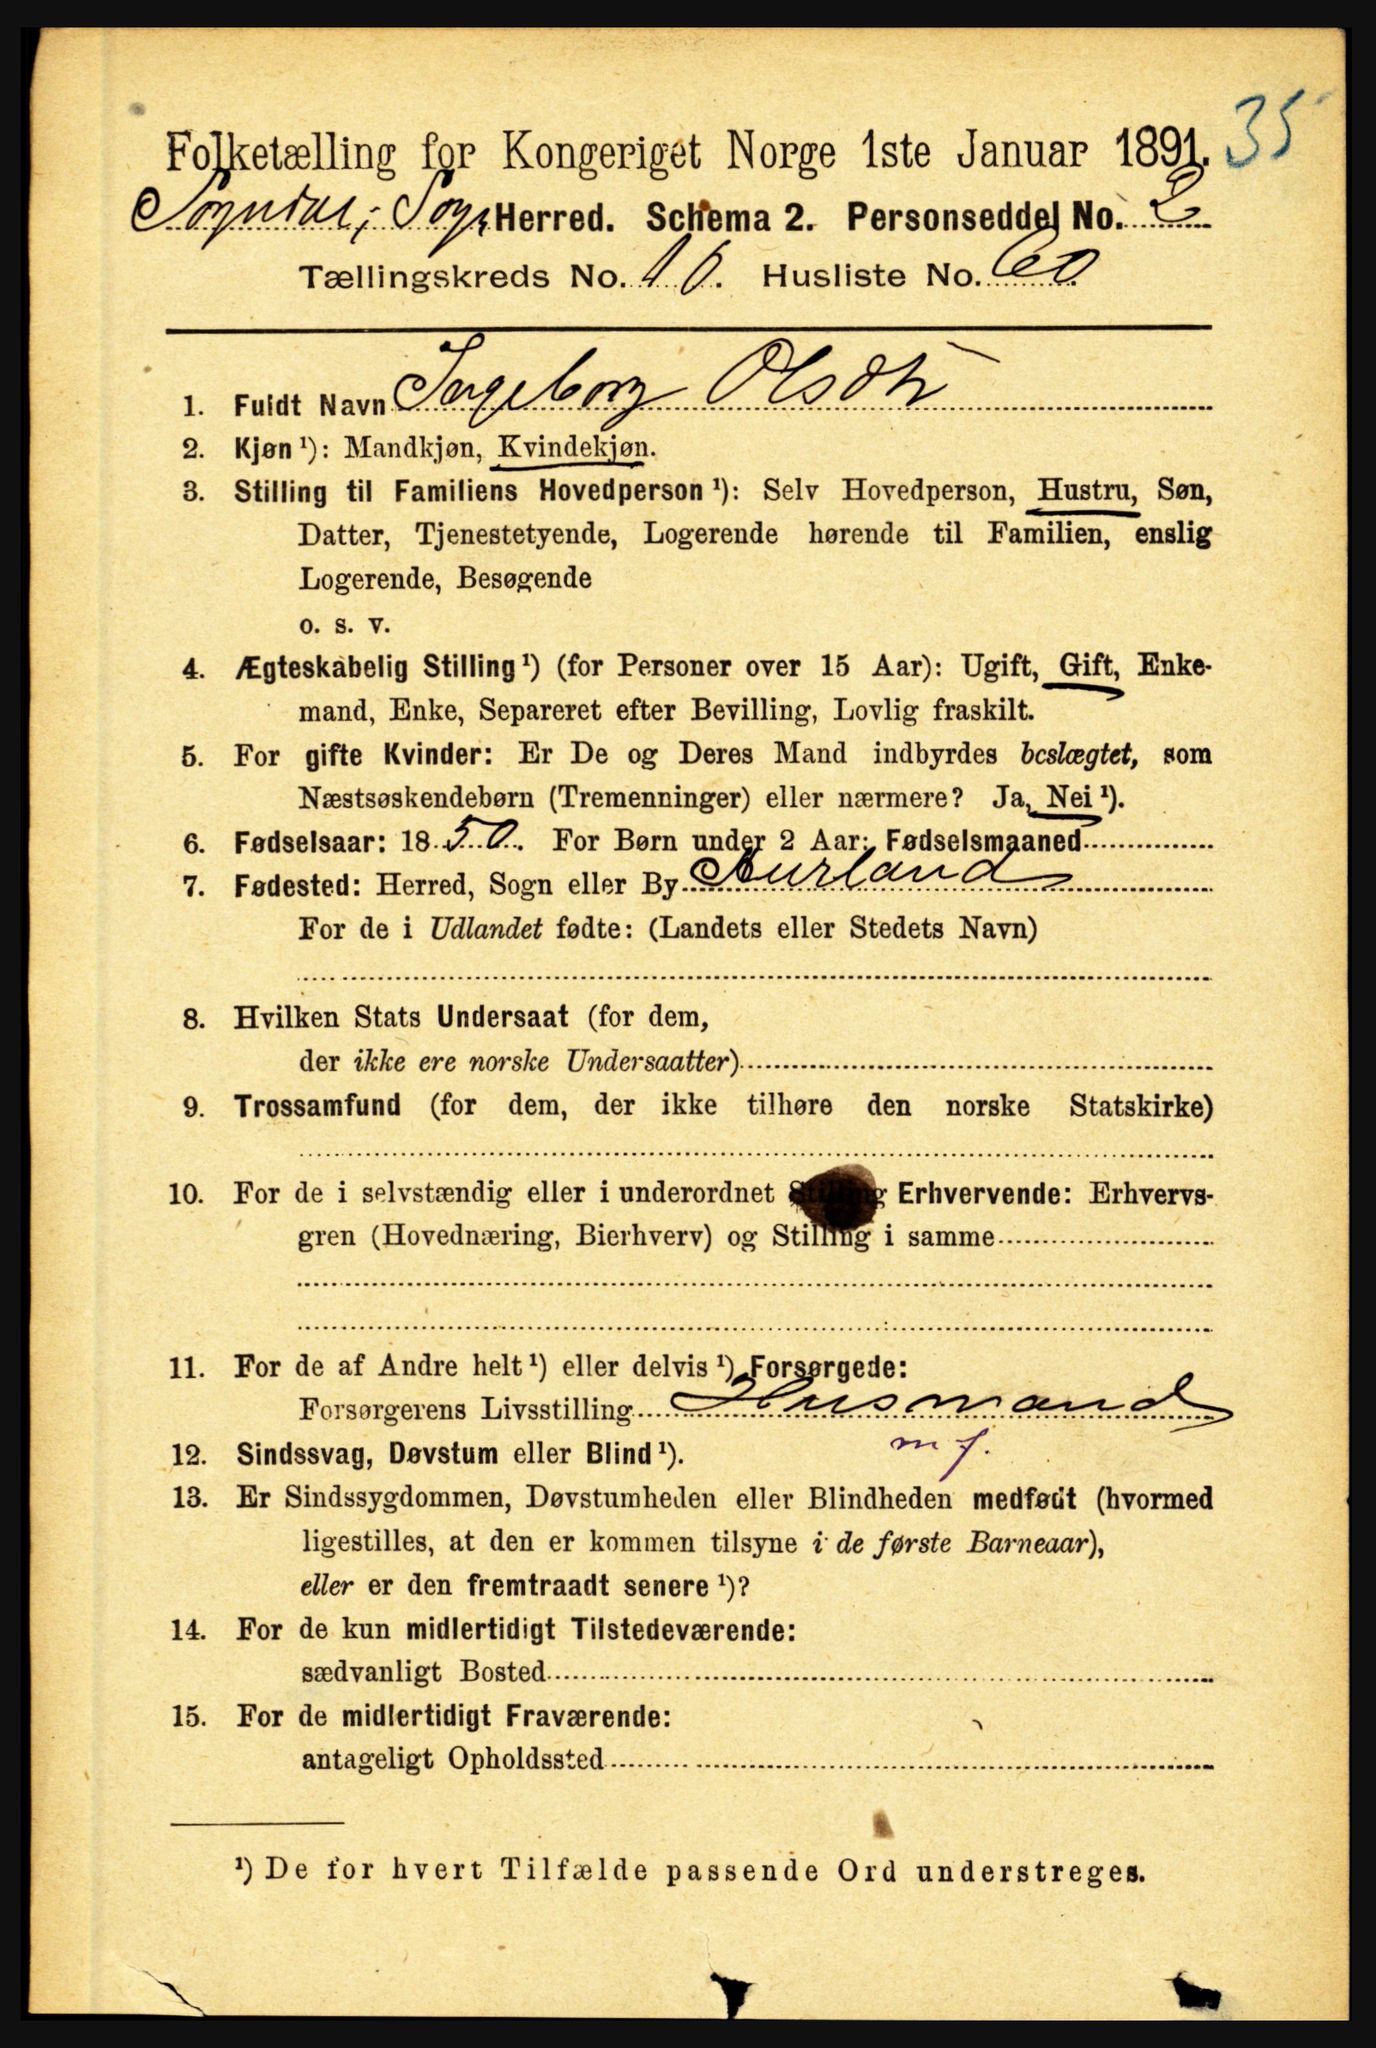 35
Folketælling for Kongeriget Norge 1ste Januar 1891.
Sogndal i Sogn Herred. Schema 2. Personseddel No. 2
Tællingskreds No. 10. Husliste No. 60.
1. Fuldt Navn Ingeborg Olsdtr
2. Kjøn¹): Mandkjøn, Kvindekjøn.
3. Stilling til Familiens Hovedperson¹): Selv Hovedperson, Hustru, Søn,
Datter, Tjenestetyende, Logerende hørende til Familien, enslig
Logerende, Besøgende
o. s. v.
4. Ægteskabelig Stilling¹) (for Personer over 15 Aar): Ugift, Gift, Enke-
mand, Enke, Separeret efter Bevilling, Lovlig fraskilt.
5. For gifte Kvinder: Er De og Deres Mand indbyrdes beslægtet, som
Næstsøskendebørn (Tremenninger) eller nærmere? Ja, Nei¹).
6. Fødselsaar: 1850. For Børn under 2 Aar: Fødselsmaaned
7. Fødested: Herred, Sogn eller By Aurland
For de i Udlandet fødte: (Landets eller Stedets Navn)
8. Hvilken Stats Undersaat (for dem,
der ikke ere norske Undersaatter)
9. Trossamfund (for dem, der ikke tilhøre den norske Statskirke)
10. For de i selvstændig eller i underordnet Stilling Erhvervende: Erhvervs-
gren (Hovednæring, Bierhverv) og Stilling i samme
11. For de af Andre helt¹) eller delvis¹) Forsørgede:
Forsørgerens Livsstilling Husmand
m f.
12. Sindssvag, Døvstum eller Blind¹).
13. Er Sindssygdommen, Døvstumheden eller Blindheden medfødt (hvormed
ligestilles, at den er kommen tilsyne i de første Barneaar),
eller er den fremtraadt senere¹)?
14. For de kun midlertidigt Tilstedeværende:
sædvanligt Bosted
15. For de midlertidigt Fraværende:
antageligt Opholdssted
¹) De for hvert Tilfælde passende Ord understreges.